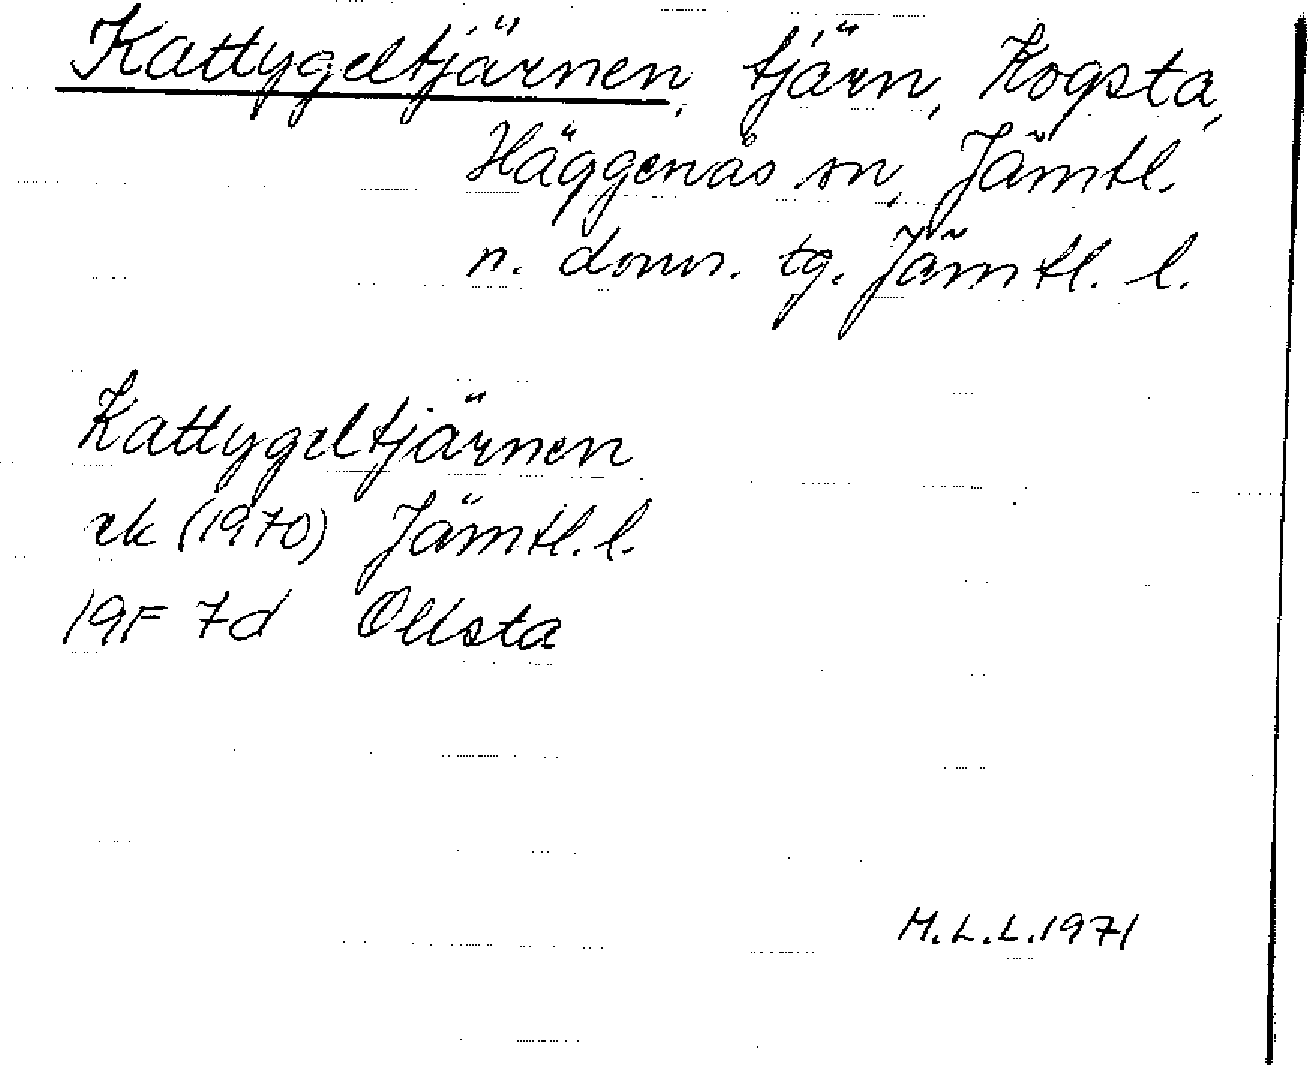 Kattygeltjärnen, tjärn, Kogsta,
Häggenås sn, Jämtl.
n. domsr. tg. Jämtl. l.
Kattygeltjärnen
ek (1970) Jämtl. l.
19F 7d Ollsta
M.L.L. 1971